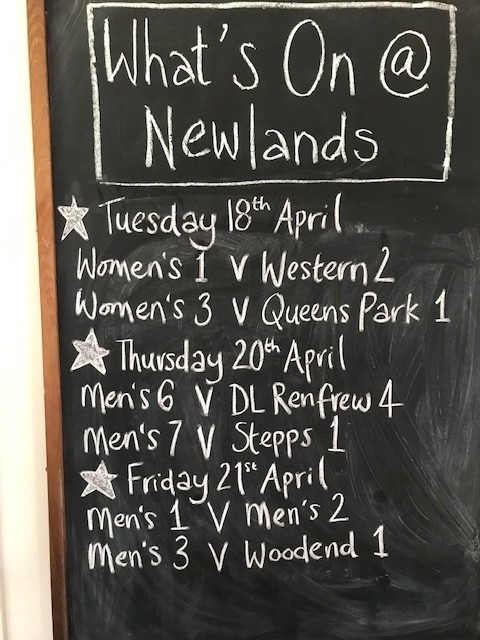 What's On @
Newlands
Tuesday 18th April
Women's 1 V Western 2
Women's 3 V Queens Park 1
Thursday 20th April
Men's 6 V DL Renfrew 4
Men's 7 V Stepps 1
Friday 21st April
Men's 1 V Men's 2
Men's 3 V Woodend 1